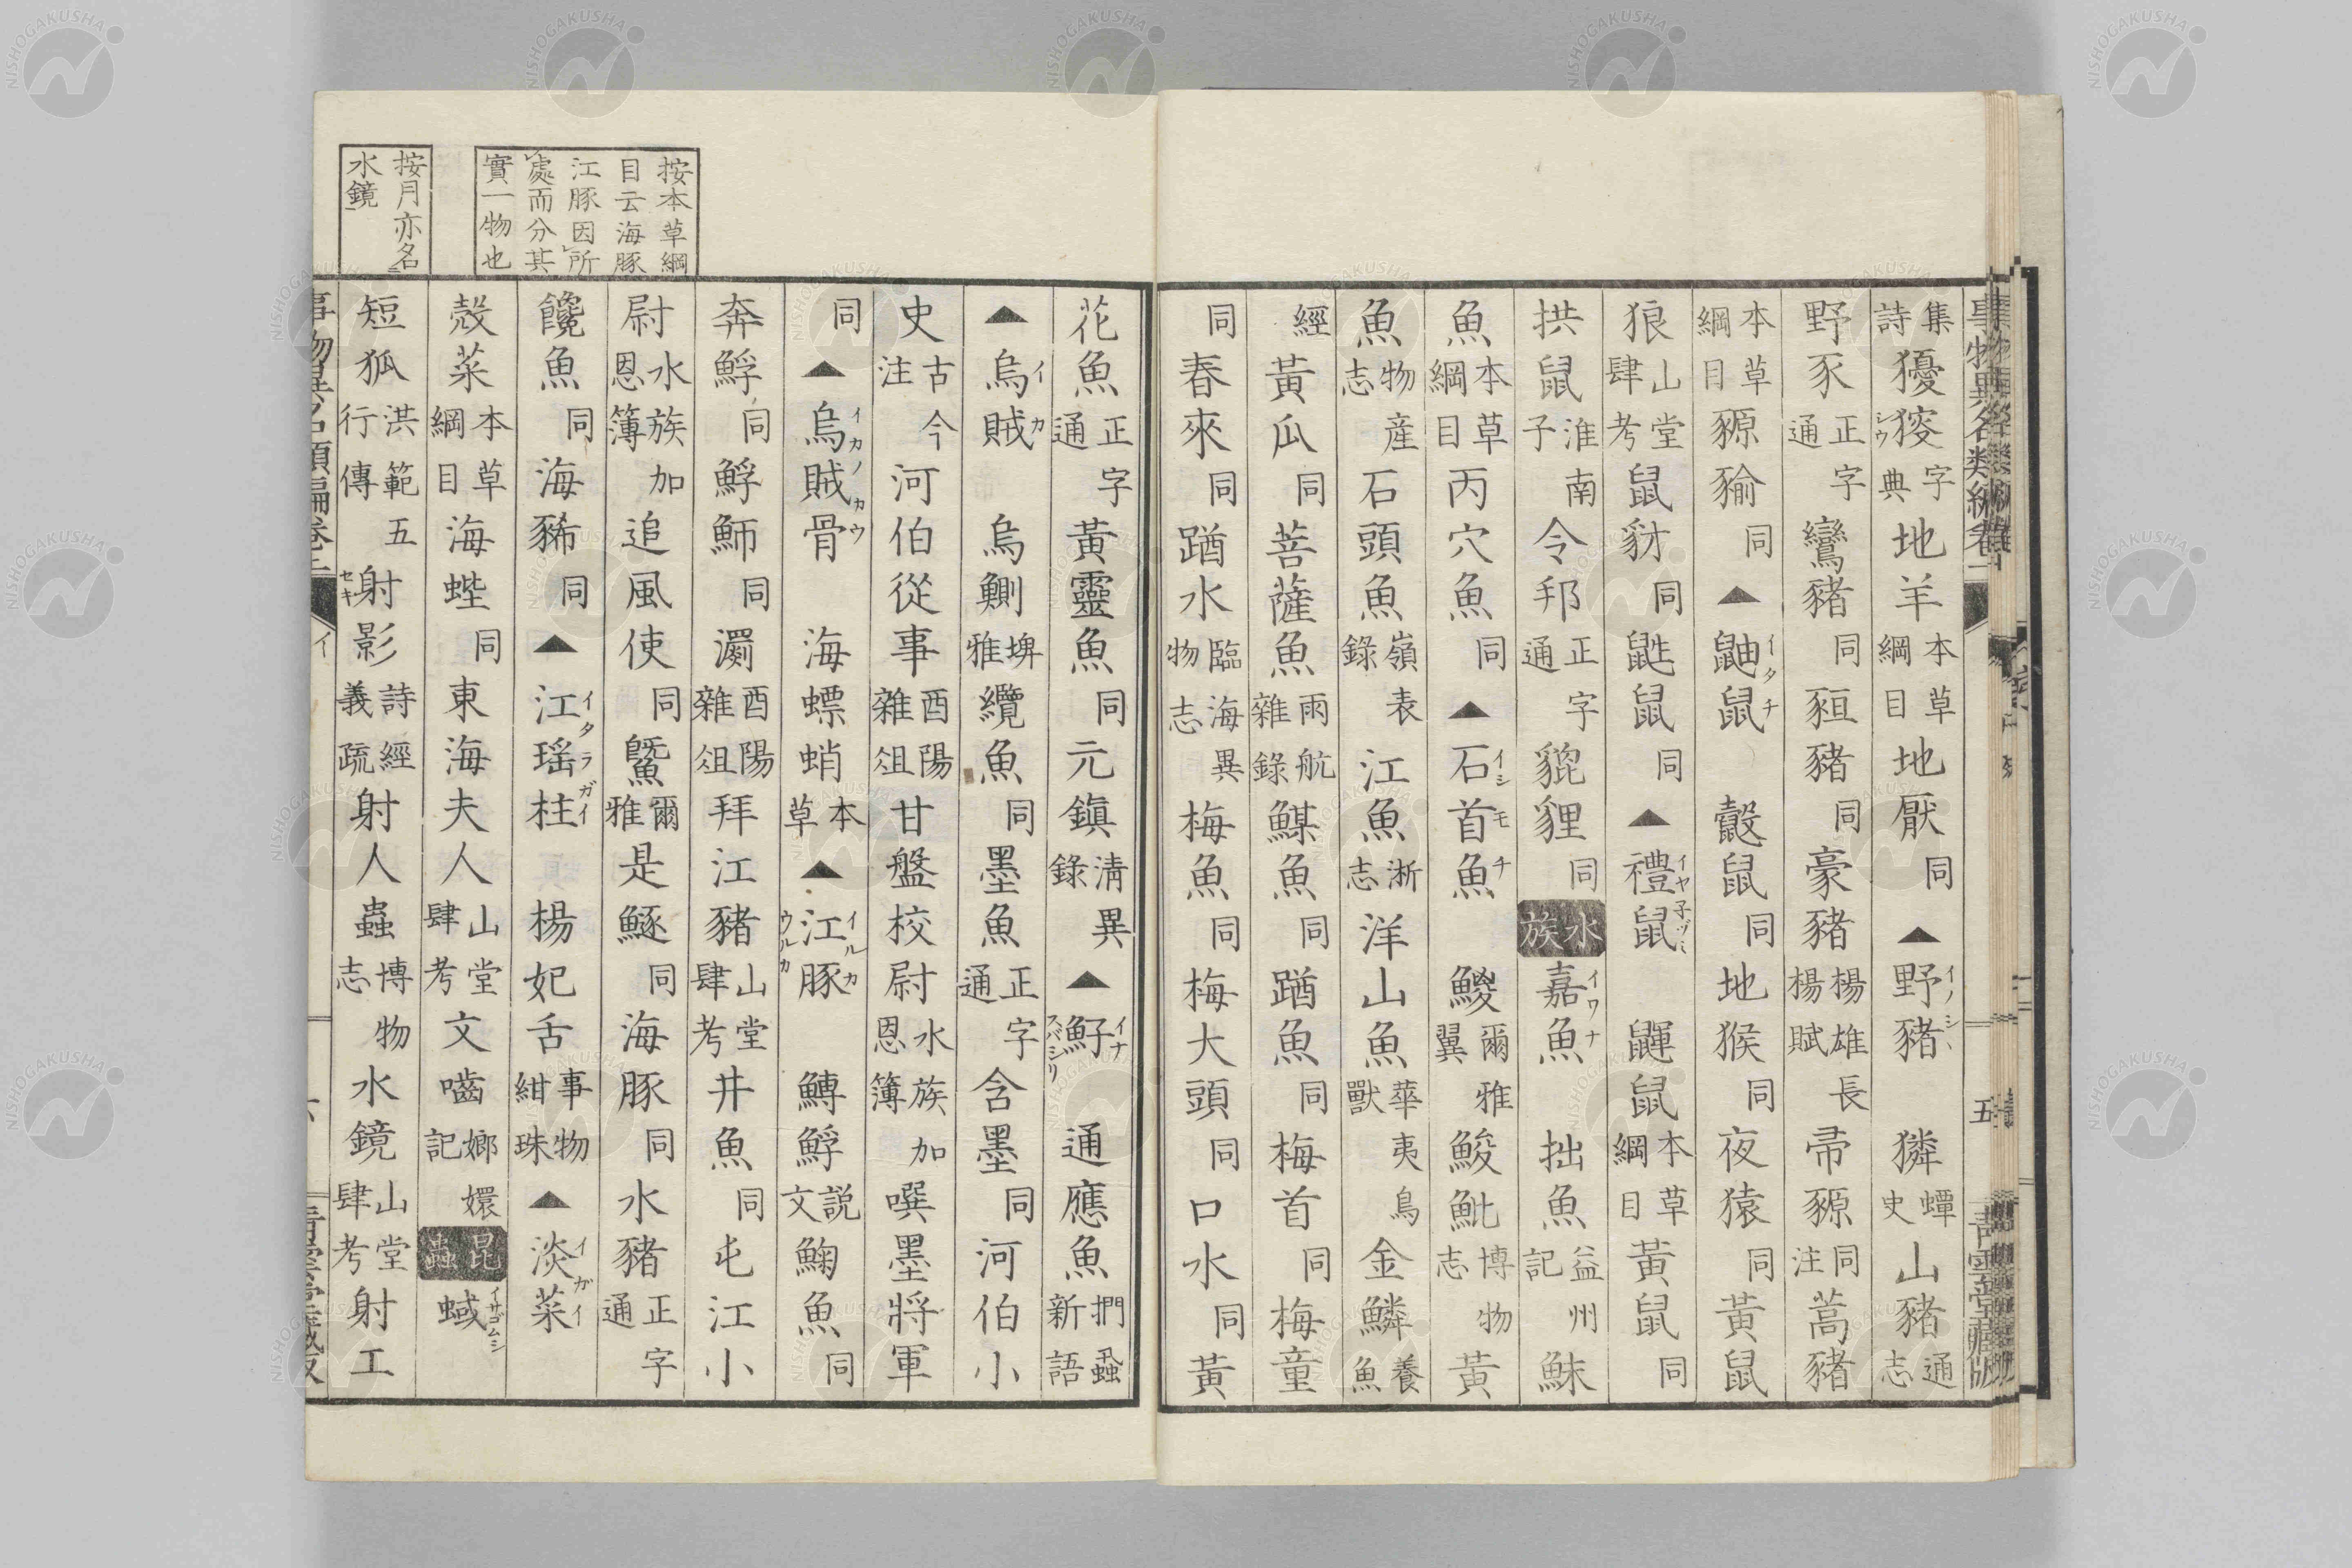 集詩獶㺒レウ字典地羊本草綱目地厭同▲野豬イノシヽ獜蟫史山豬通志
野豕正字通鸞豬同豲豬同豪豬楊雄長楊賦帚豲同注蒿豬
本草綱目豲貐同▲鼬鼠イタチ鼠同地猴同夜猿同黃鼠
狼山堂肆考鼠豺同鼪鼠同▲禮鼠イヤ子ヅミ鼲鼠本草綱目黃鼠同
拱鼠淮南子令邦正字通貔貍同水族嘉魚イワナ拙魚益州記鮇
魚本草綱目丙穴魚同▲石首魚イシモチ鯼爾雅翼鮻魮博物志黃
魚物産志石頭魚嶺表錄江魚淅志洋山魚華夷鳥獸金鱗養魚
經黃瓜同菩薩魚雨航雜錄鰀魚同踏魚同梅首同梅童
同春來同踏水臨海異物志梅魚同梅大頭同口水同黃
花魚正字通黃靈魚同元鎮清異錄▲魣イナスバシリ通應魚捫蝨新語
▲烏賊イカ烏鰂埤雅纜魚同墨魚正字通含墨同河伯小
史古今注河伯從事酉陽雜俎甘盤校尉水族加恩簿噀墨將軍
同▲烏賊骨イカノカウ海螵蛸本草▲江豚イルカウルカ鱄䱐説文鮈魚同
奔䱐同䱐魳同㶜酉陽雜俎拜江豬山堂肆考井魚同屯江小
尉水族加恩簿追風使同鱀爾雅是鱁同海豚同水豬正字通
饞魚同海豨同▲江瑤柱イタラガイ楊妃舌事物紺珠▲淡菜イガイ
殼菜本草綱目海蛙同東海夫人山堂肆考文嚙嫏嬛記昆蟲蜮イサゴムシ
短狐洪範五行傳射影セキ詩經義疏射人蟲博物志水鏡山堂肆考射工
按本草綱
目云海豚
江豚因所
處而分其
實一物也
按月亦名
水鏡
事物異名類編卷二
五
青雲堂藏版